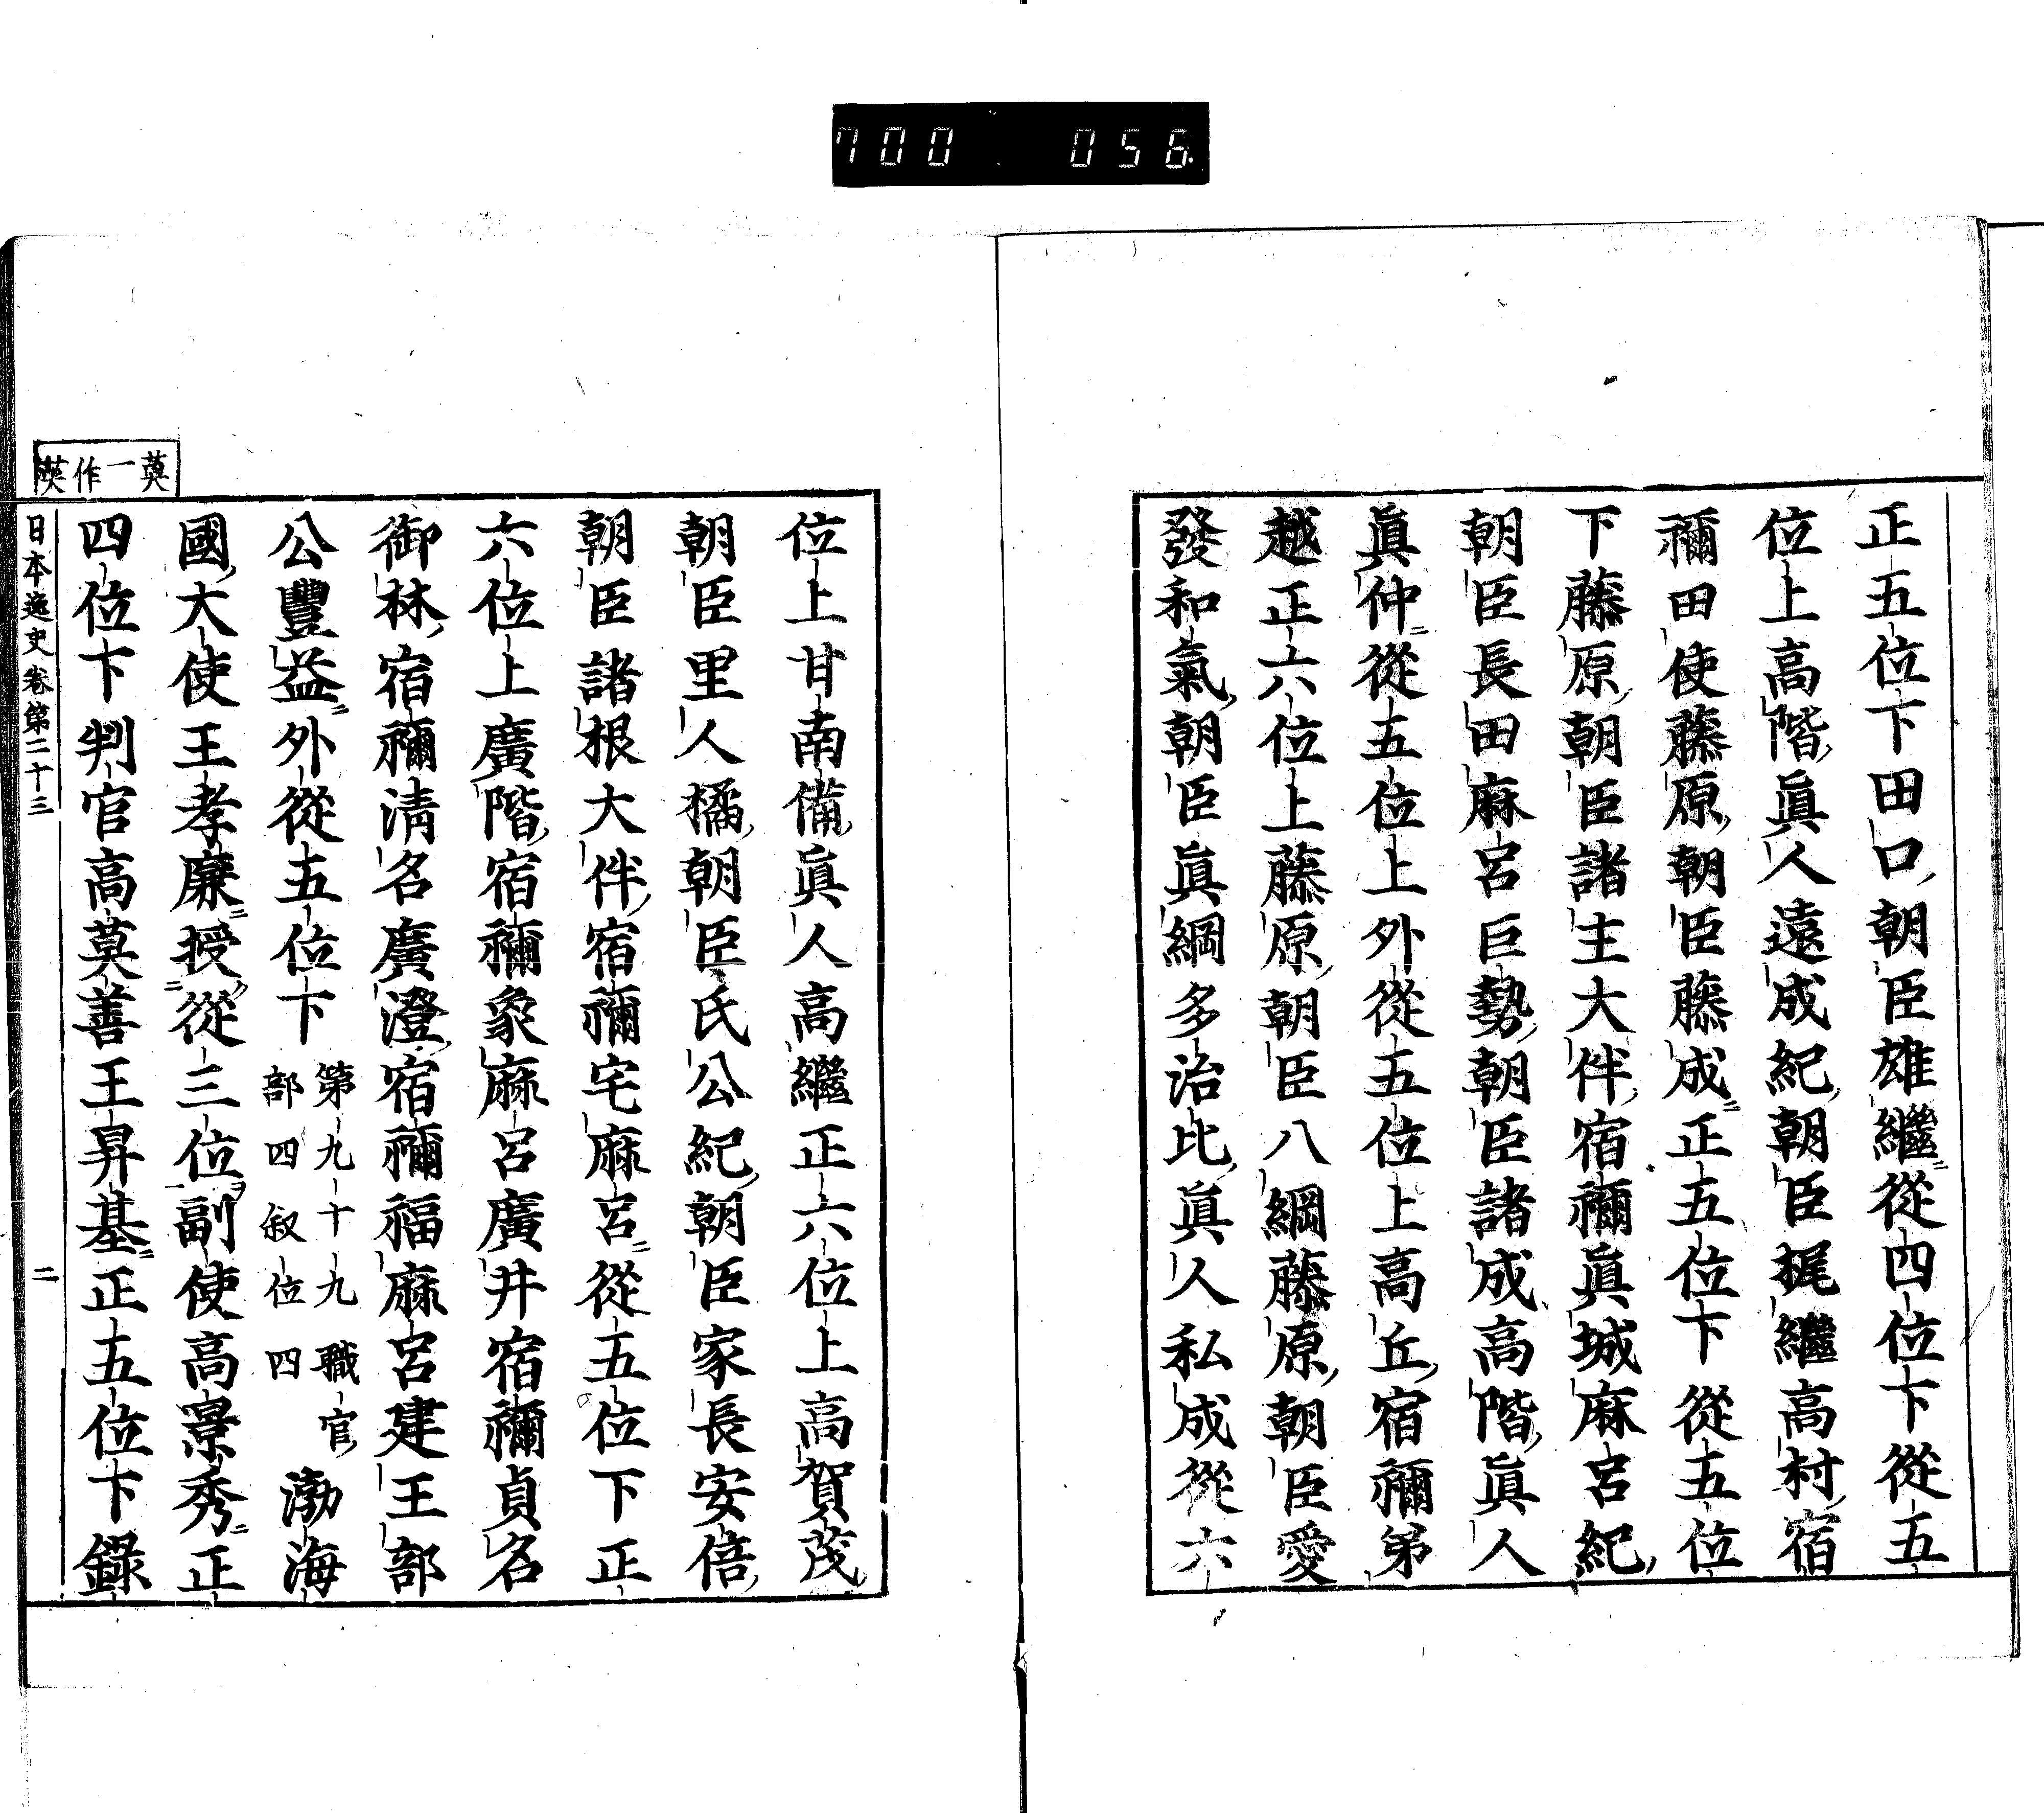 700 056
正五位下田口朝臣雄繼從四位下從五
位上高階眞人遠成紀朝臣梶繼高村宿
禰田使藤原朝臣藤成正五位下從五位
下藤原朝臣諸主大伴宿禰眞城麻呂紀
朝臣長田麻呂巨勢朝臣諸成高階眞人
眞仲從五位上外從五位上高丘宿禰弟
越正六位上藤原朝臣八綱藤原朝臣愛
發和氣朝臣眞綱多治比眞人私成從六
位上甘南備眞人高繼正六位上高賀茂
朝臣里人橘朝臣氏公紀朝臣家長安倍
朝臣諸根大伴宿禰宅麻呂從五位下正
六位上廣階宿禰象麻呂廣井宿禰貞名
御林宿禰淸名廣澄宿禰福麻呂建王部
公豐益外從五位下第九十九職官部四叙位四渤海
國大使王孝廉授從三位副使高景秀正
四位下判官高莫善王昇基正五位下錄
莫一作漠
日本逸史卷第二十三
二